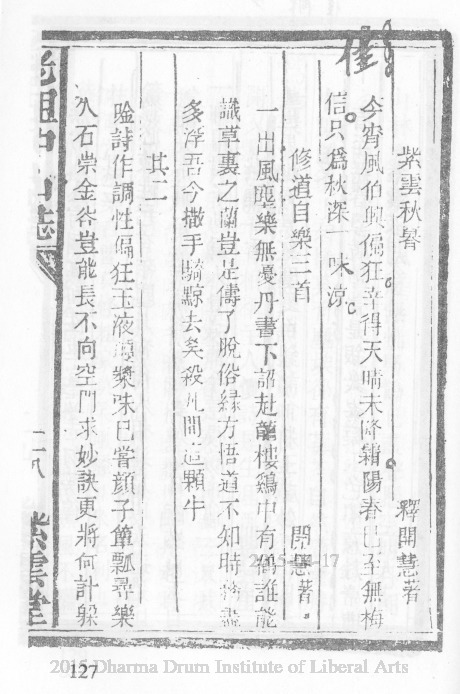 佳
紫雲秋暑 釋開慧著
今宵風伯興偏狂幸得天晴未降霜陽春已至無梅
信只為秋深一味凉
修道自樂三首 開慧著
一出風塵樂無憂丹書下詔赴龍樓鷄中有鶴誰能
識草裏之蘭豈足儔了脫俗緣方悟道不知時務盡
多浮吾今撒手騎鯨去矣殺凡間這顆牛
其二
賒詩作調性偏狂玉液瓊漿味已嘗顏子簞瓢尋樂
石崇金谷豈能長不向空門求妙訣更將何計躲
山誌
二八
紫雲堂
127
2015 Dharma Drum Institute of Liberal Arts